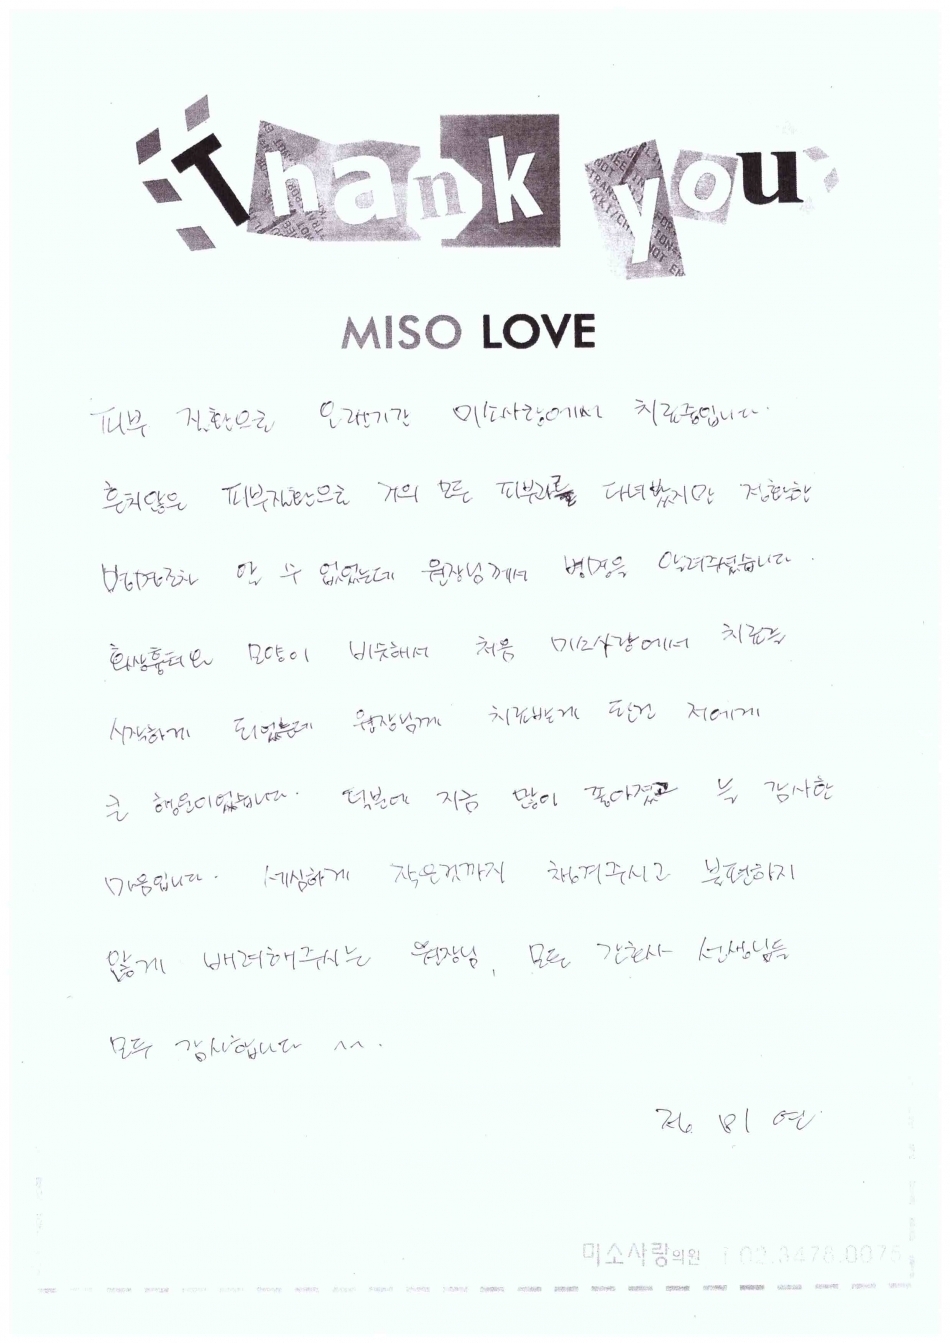 Thank you
MISO LOVE
피부 질환으로 오랜기간 미소사랑에서 치료중입니다.
흔치않은 피부질환으로 거의 모든 피부과를 다녀봤지만 정확한
병명조차 알 수 없었는데 원장님께서 병명을 알려주셨습니다.
화상흉터와 모양이 비슷해서 처음 미소사랑에서 치료를
시작하게 되었는데 원장님께 치료받게 된건 저에게
큰 행운이었습니다. 덕분에 지금 많이 좋아졌고 늘 감사한
마음입니다. 세심하게 작은것까지 챙겨주시고 불편하지
않게 배려해주시는 원장님, 모든 간호사 선생님들
모두 감사합니다 ^^.
정미연
미소사랑의원 02.3476.0075